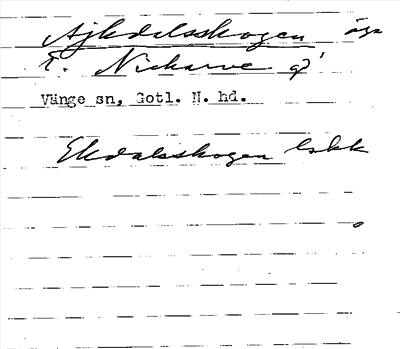 Ajkdalsskogen äga
t. Nickarve gd
Vänge sn, Gotl. N. hd.
Ekdalsskogen